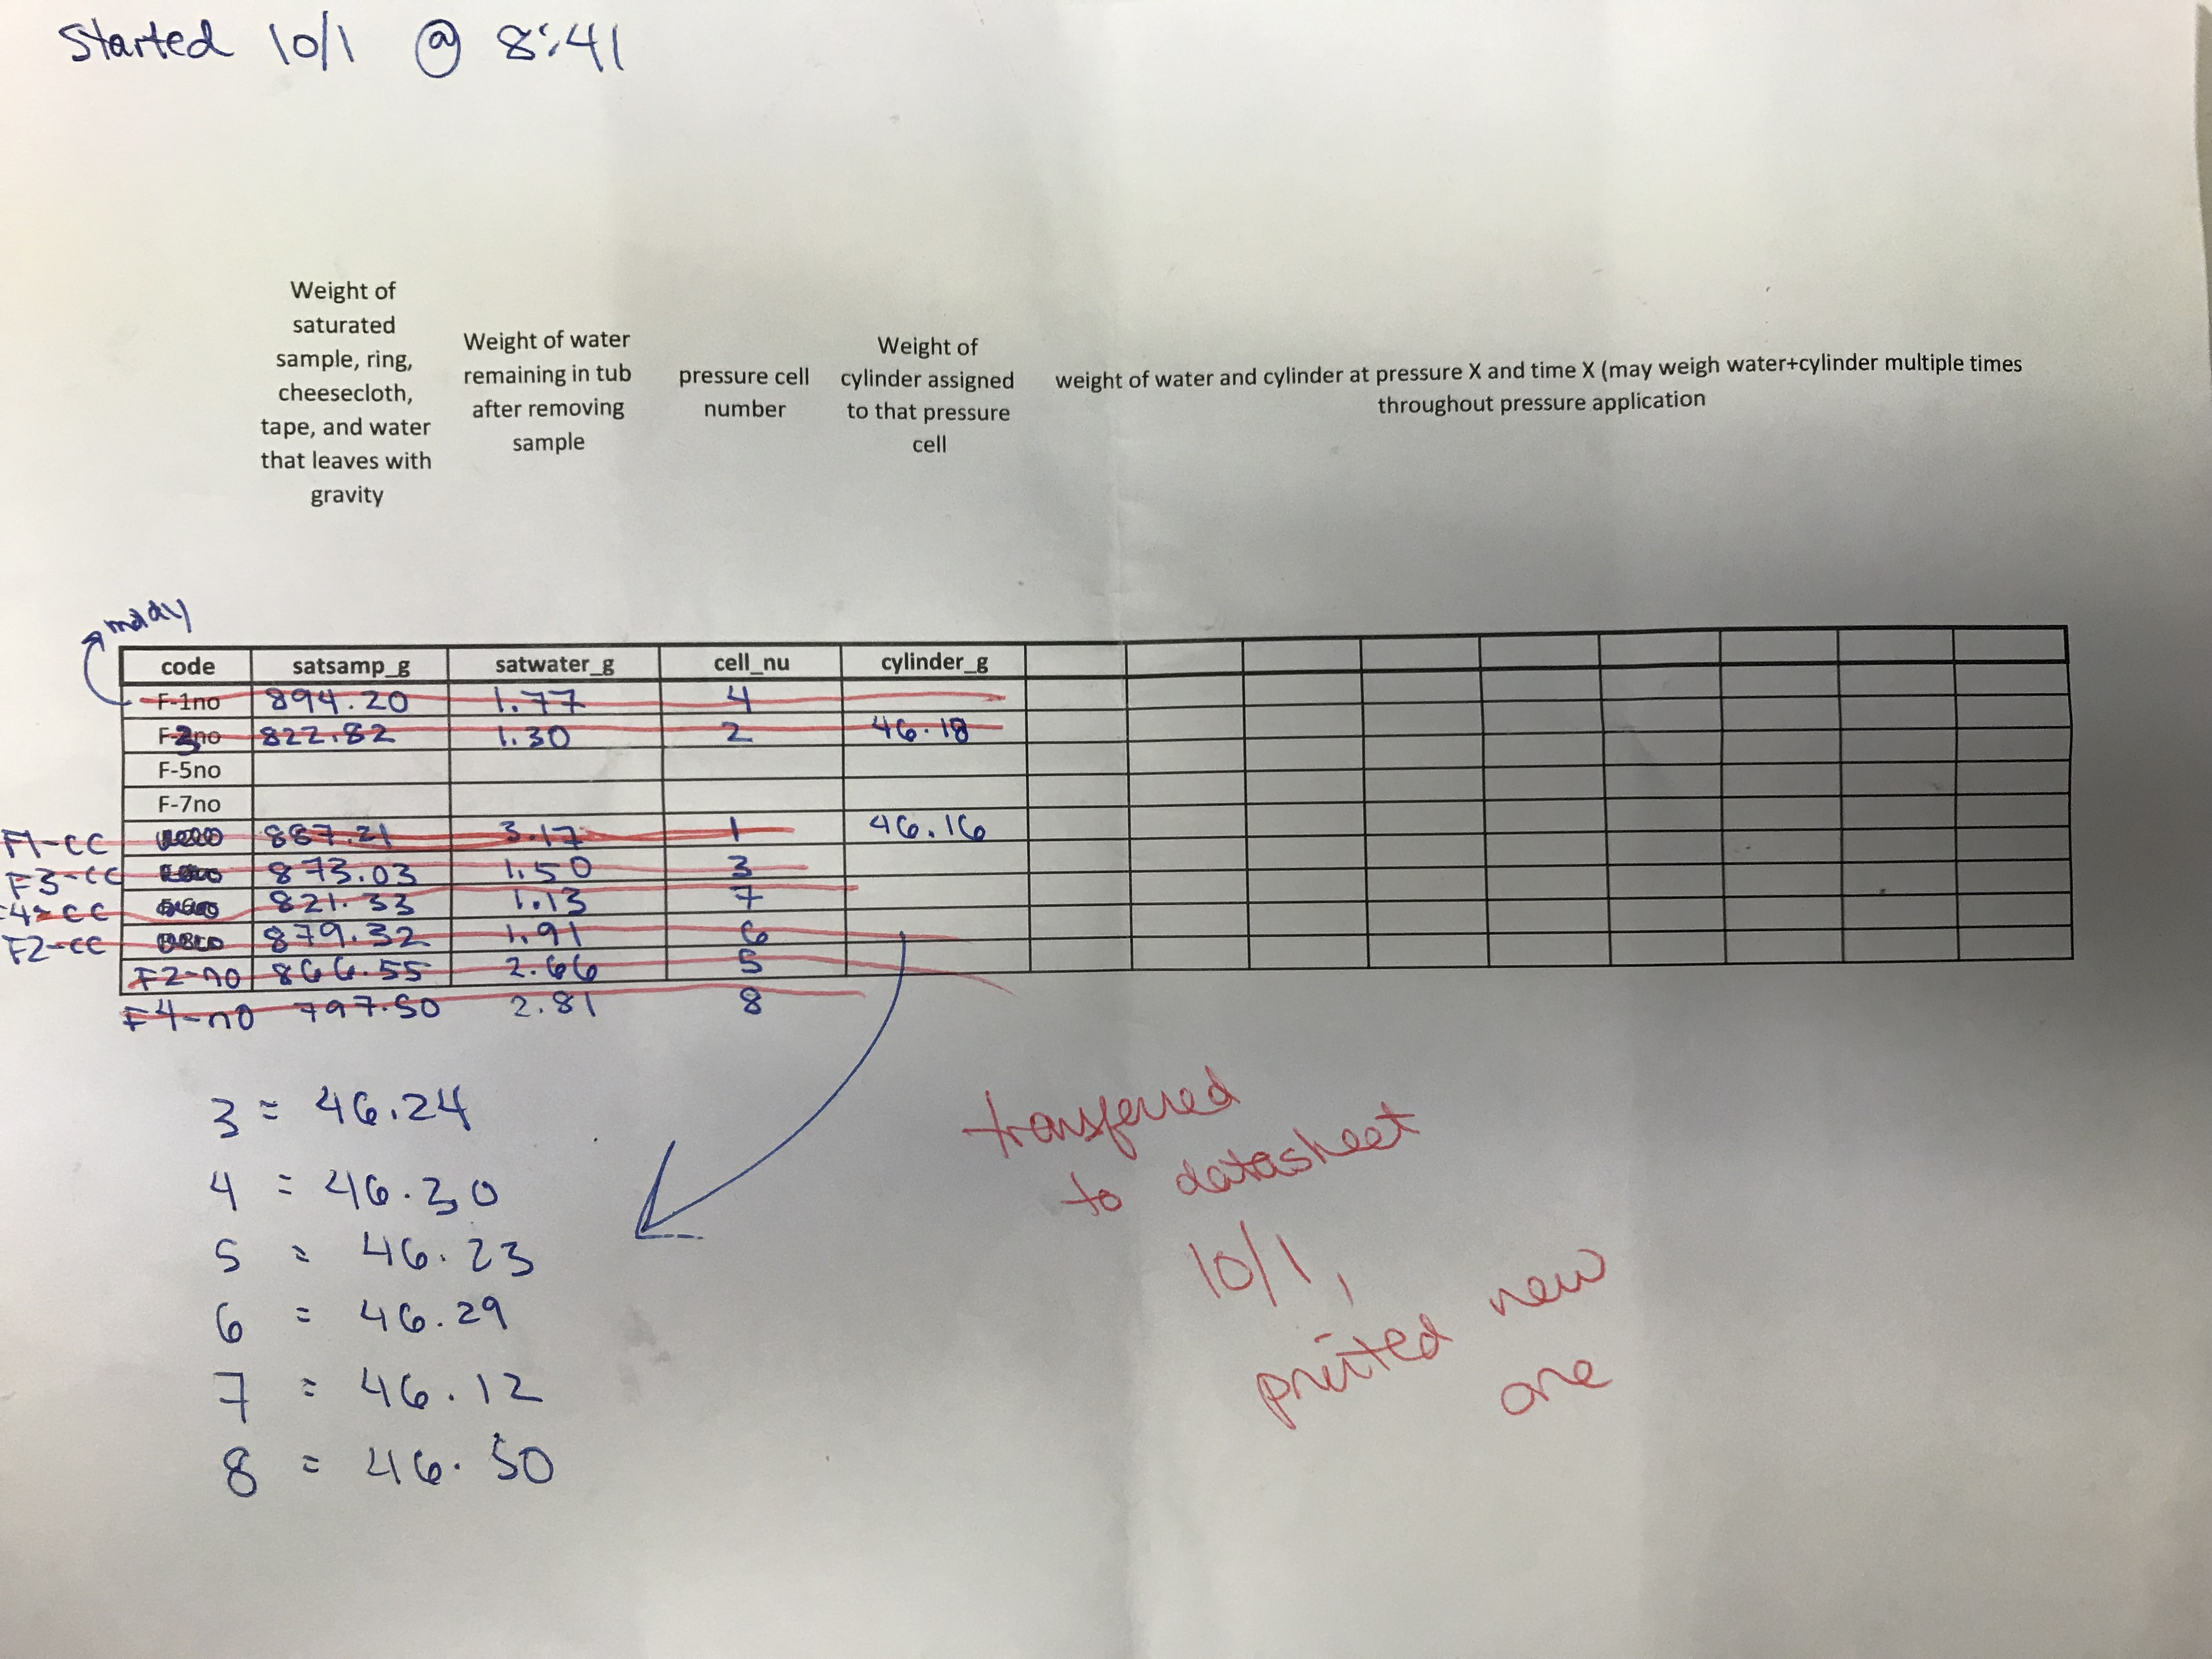 Started 10/1 @ 8:41
Weight of
saturated
sample, ring,
cheesecloth,
tape, and water
that leaves with
gravity
Weight of water
remaining in tub
after removing
sample
pressure cell
number
Weight of
cylinder assigned
to that pressure
cell
weight of water and cylinder at pressure X and time X (may weigh water+cylinder multiple times
throughout pressure application
code satsamp_g satwater_g cell_nu cylinder_g
F-1no 894.20 1.77 4
F-3no 822.82 1.30 2 46.18
F-5no
F-7no
F1-cc 887.21 3.17 1 46.16
F3-cc 873.03 1.50 3
F4-cc 821.33 1.13 7
F2-cc 879.32 1.91 6
F2-no 866.55 2.66 5
F4-no 797.50 2.81 8
3 = 46.24
4 = 46.30
5 = 46.23
6 = 46.29
7 = 46.12
8 = 46.50
transferred
to datasheet
10/1,
printed new
one